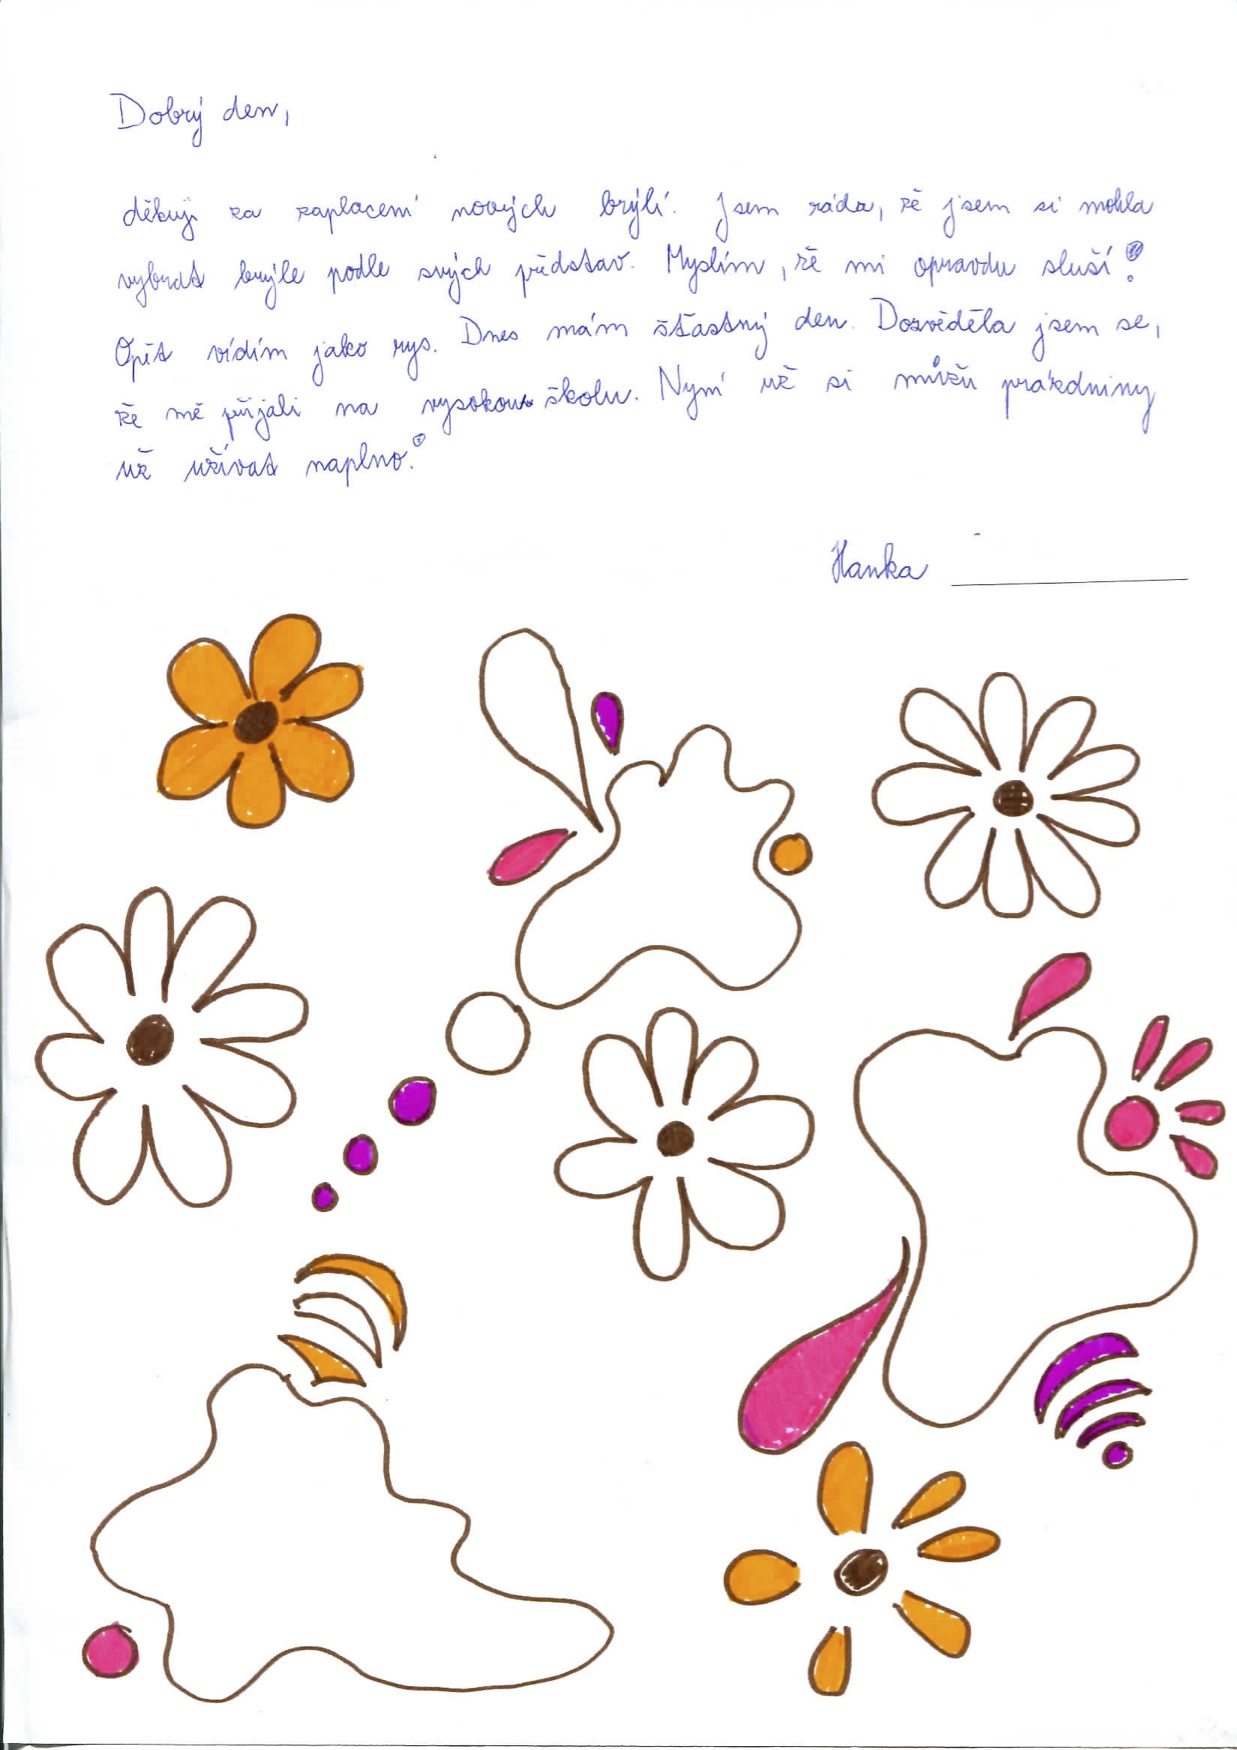 Dobrý den,
děkuji za zaplacení nových brýlí. Jsem ráda, že jsem si mohla
vybrat brýle podle svých představ. Myslím, že mi opravdu sluší!
Opět vidím jako rys. Dnes mám šťastný den. Dozvěděla jsem se,
že mě přijali na vysokou školu. Nyní už si můžu prázdniny
už užívat naplno.
Hanka